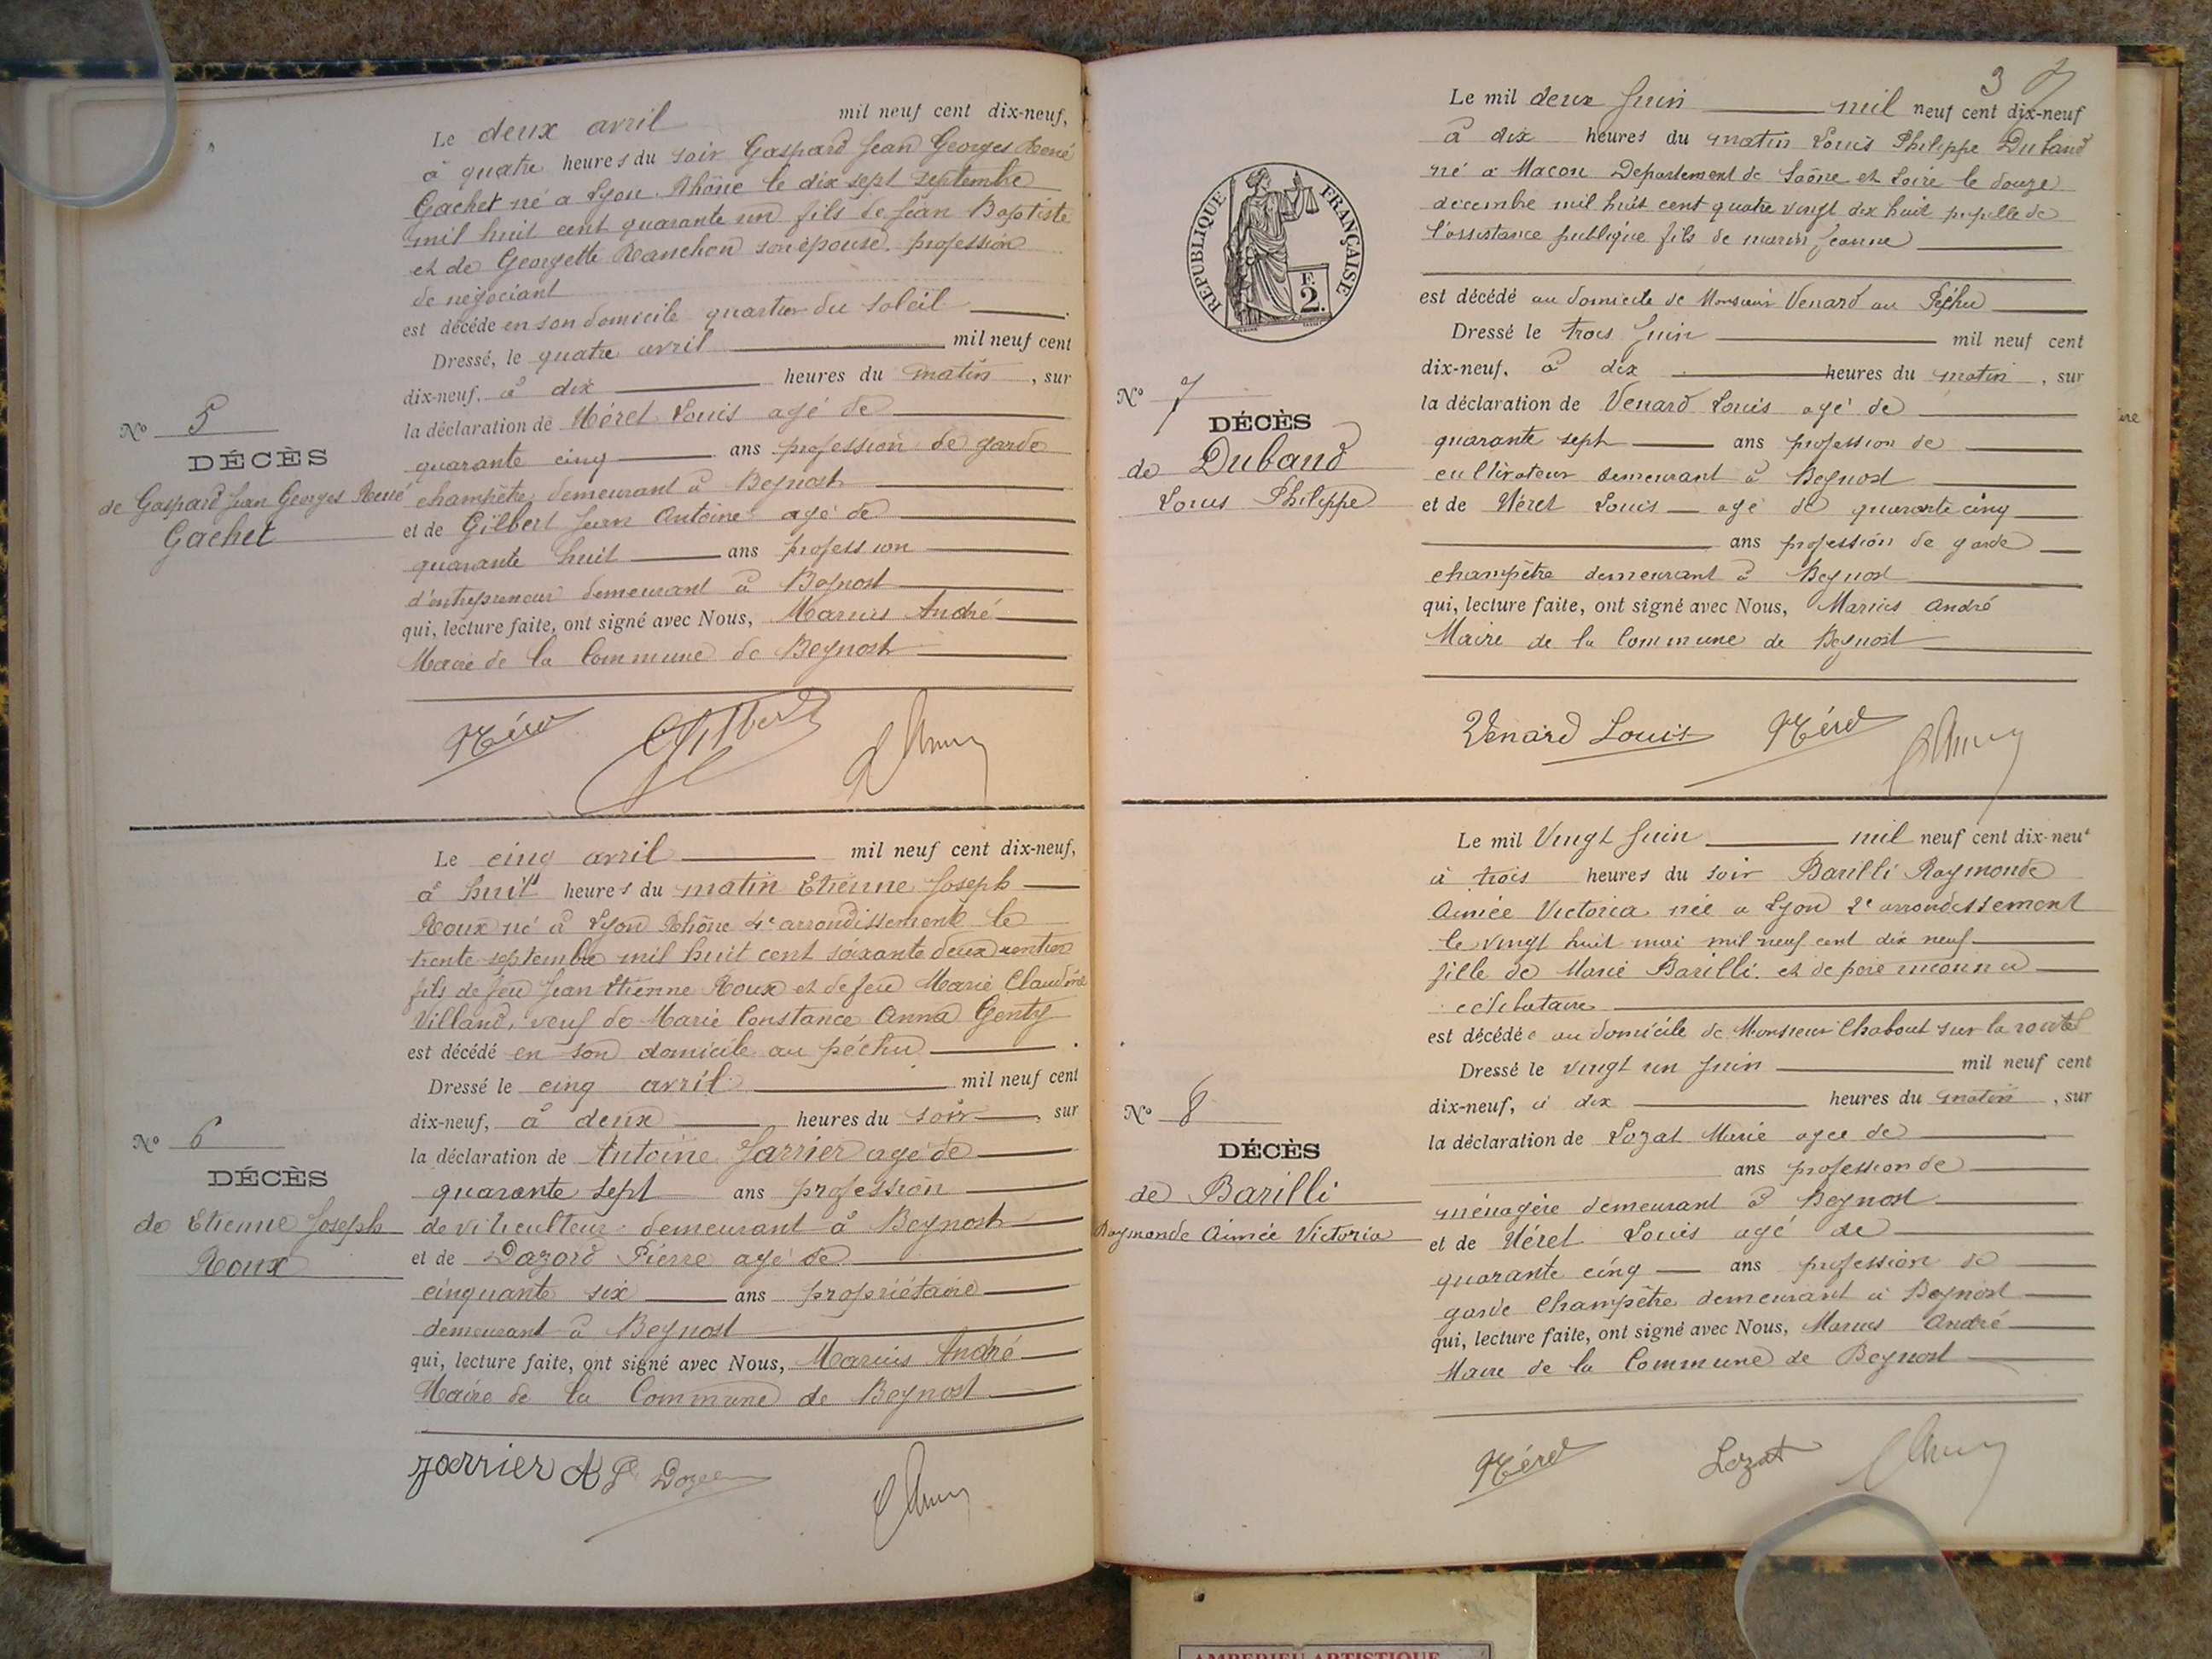 Le deux avril mil neuf cent dix-neuf,
à quatre heures du soir Gaspard Jean Georges René
Gachet né à Lyon Rhône le dix sept septembre
mil huit cent quarante un fils de Jean Baptiste
et de Georgette Ranchon son épouse. profession
de négociant
est décédé en son domicile quartier du Soleil
Dressé, le quatre avril mil neuf cent
dix-neuf, à dix heures du matin, sur
la déclaration de Méret Louis agé de
quarante cinq ans profession de garde
champêtre demeurant à Beynost
et de Gilbert Jean Antoine agé de
quarante huit ans profession
d'entrepreneur demeurant à Beynost
qui, lecture faite, ont signé avec Nous, Marius André
Maire de la Commune de Beynost
No 5
DÉCÈS
de Gaspard Jean Georges René
Gachet
Méret Gilbert
Le cinq avril mil neuf cent dix-neuf,
à huit heures du matin Etienne Joseph
Roux né à Lyon Rhône 4e arrondissement le
trente septembre mil huit cent soixante deux rentier
fils de feu Jean Etienne Roux et de feu Marie Claudine
Villand, veuf de Marie Constance Anna Genty
est décédé en son domicile au péchu
Dressé le cinq avril mil neuf cent
dix-neuf, à deux heures du soir, sur
la déclaration de Antoine Jarrier agé de
quarante sept ans profession
de viticulteur demeurant à Beynost
et de Dazord Pierre agé de
cinquante six ans propriétaire
demeurant à Beynost
qui, lecture faite, ont signé avec Nous, Marius André
Maire de la Commune de Beynost
No 6
DÉCÈS
de Etienne Joseph
Roux
Jarrier
3
Le mil deux Juin mil neuf cent dix-neuf
à dix heures du matin Louis Philippe Dubaud
né à Macon Departement de Saône et Loire le douze
décembre mil huit cent quatre vingt dix huit pupille de
l'assistance publique fils de marin Jeanne
est décédé au domicile de Monsieur Venard au Péchu
Dressé le trois Juin mil neuf cent
dix-neuf, à dix heures du matin, sur
la déclaration de Venard Louis agé de
quarante sept ans profession de
cultivateur demeurant à Beynost
et de Méret Louis agé de quarante cinq
ans profession de garde
champêtre demeurant à Beynost
qui, lecture faite, ont signé avec Nous, Marius André
Maire de la Commune de Beynost
REPUBLIQUE FRANÇAISE
F.
2.
No 7
DÉCÈS
de Dubaud
Louis Philippe
Venard Louis Méret
Le mil Vingt Juin mil neuf cent dix-neuf
à trois heures du soir Barilli Raymonde
Aimée Victoria née a Lyon 2e arrondissement
le vingt huit mai mil neuf cent dix neuf
fille de Marie Barilli et de père inconnu
célibataire
est décédée au domicile de Monsieur Chabout sur la route
Dressé le vingt un Juin mil neuf cent
dix-neuf, à dix heures du matin, sur
la déclaration de Lozat Marie agée de
ans profession de
ménagère demeurant à Beynost
et de Méret Louis agé de
quarante cinq ans profession de
garde Champêtre demeurant à Beynost
qui, lecture faite, ont signé avec Nous, Marius André
Maire de la Commune de Beynost
No 8
DÉCÈS
de Barilli
Raymonde Aimée Victoria
Méret Lozat
AMBERIEU ARTISTIQUE